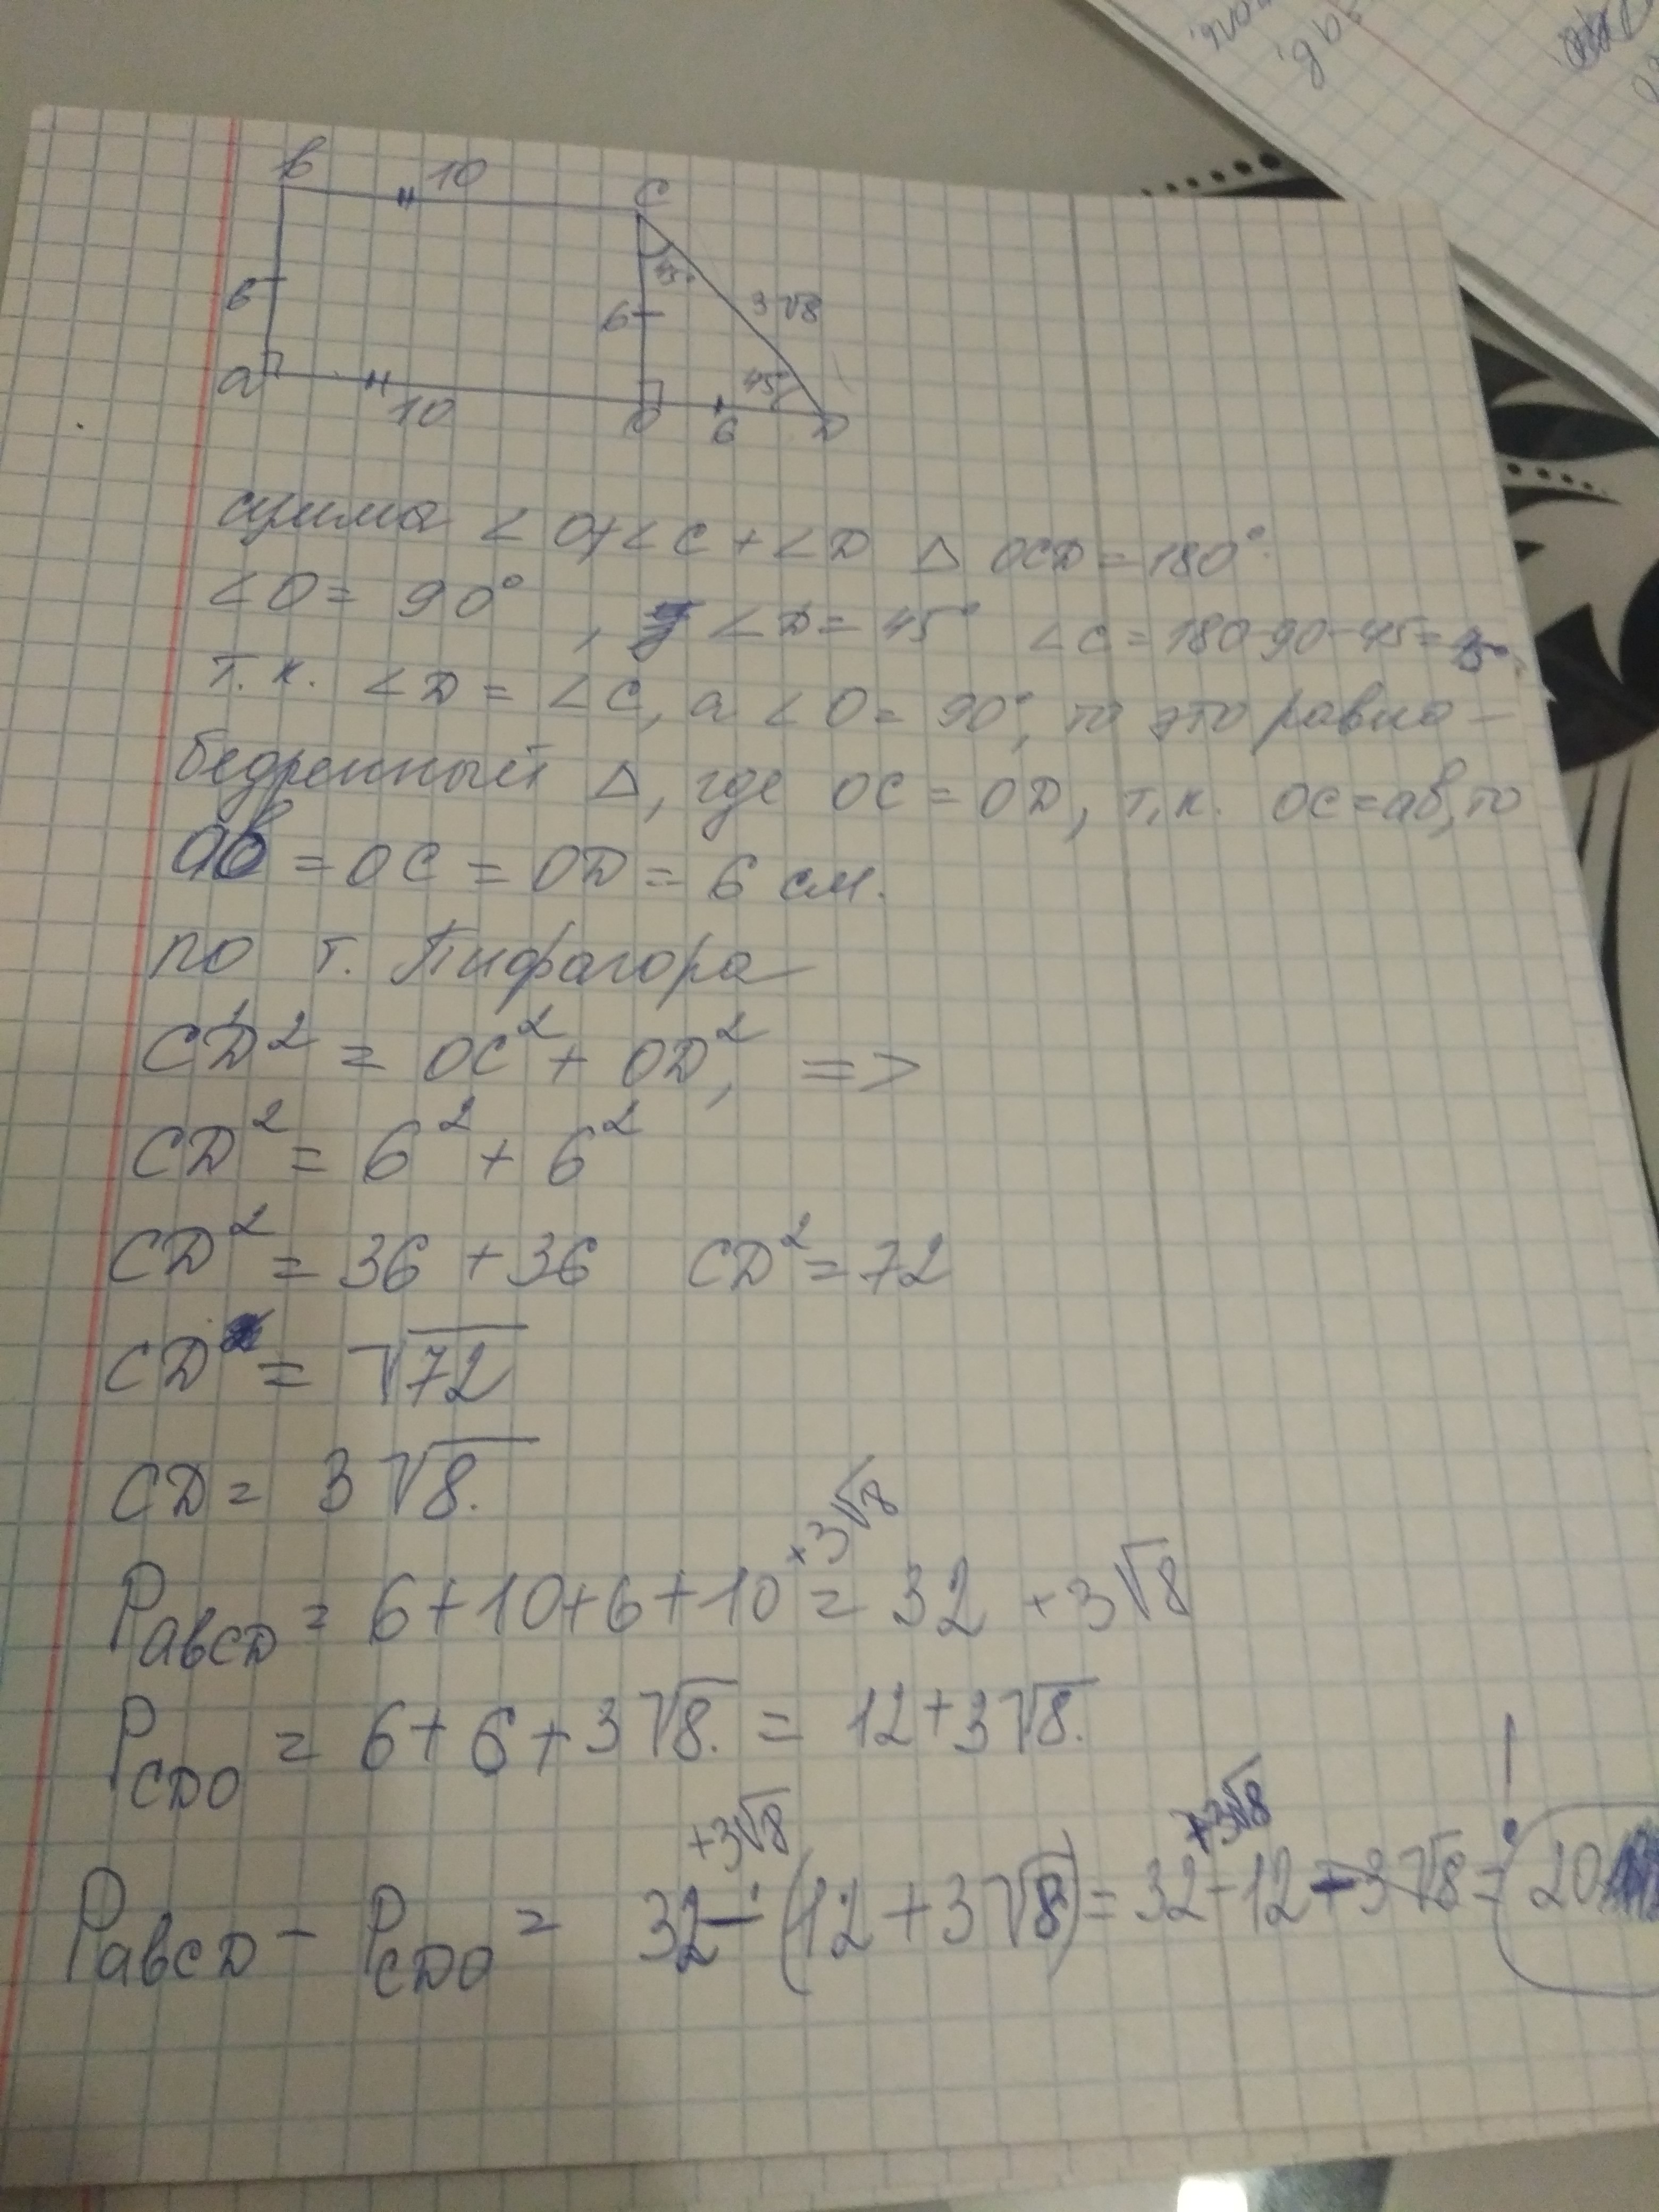 в 10 C
45°
6 6 3√8
a 45°
10 O 6 D
сумма < O+< C + <D △ OCD = 180°.
<O = 90°, <D = 45° <C = 180-90-45=
т.к. <D = <C, а <O = 90°, то это равно-
бедренный △, где OC = OD, т.к. OC = aв, то
aв = OC = OD = 6 см.
по т. Пифагора
CD² = OC² + OD², =>
CD² = 6² + 6²
CD² = 36 + 36 CD² = 72
CD = √72
CD = 3√8.
PaвCD = 6+10+6+10+3√8 = 32 + 3√8
PCDO = 6+6+3√8. = 12+3√8.
PaвCD - PCDO = 32+3√8 - (12+3√8) = 32+3√8-12-3√8 = 20